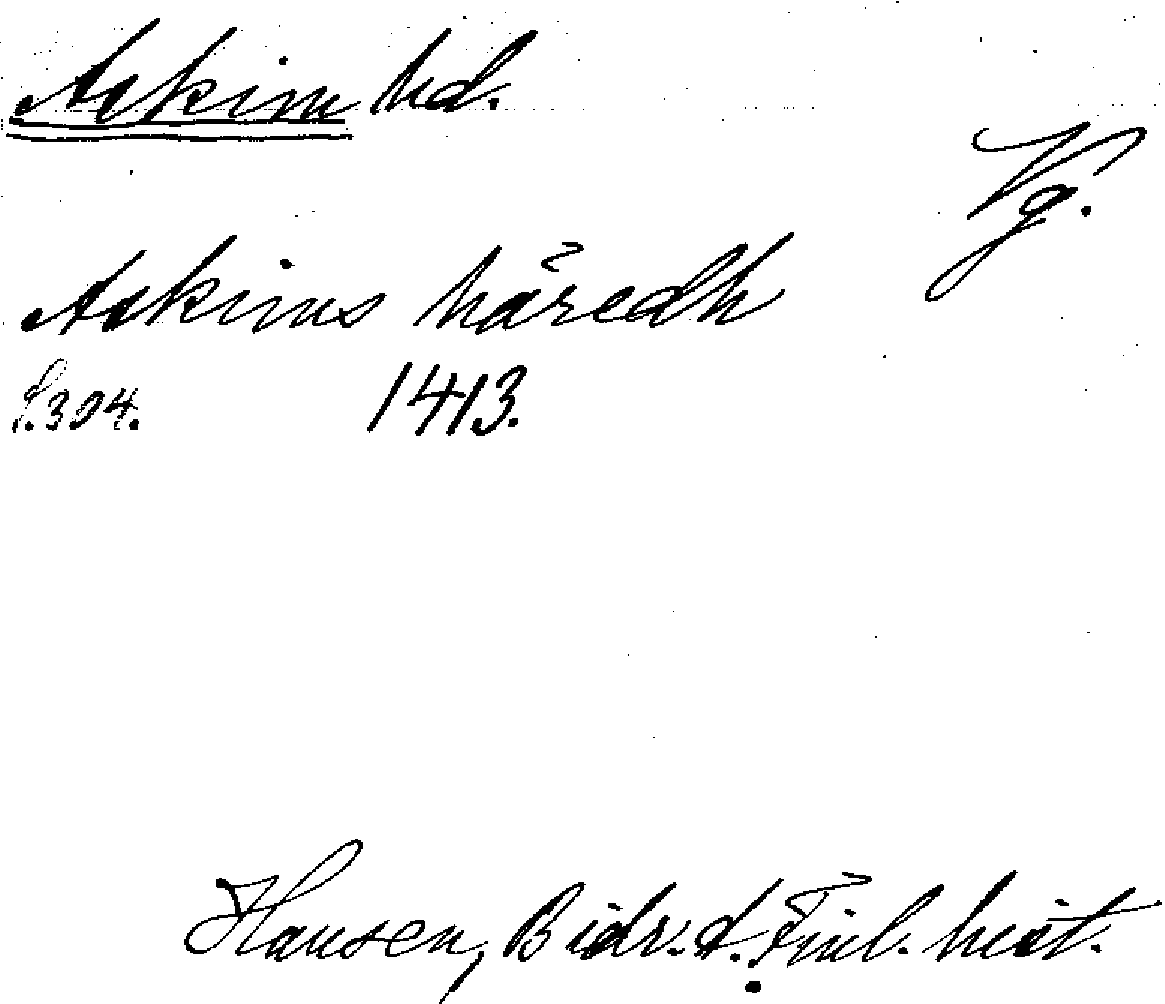 Askim hd.
Vg.
Askims håredh
S.304. 1413.
Hausen, Bidr. t. Finl. hist.